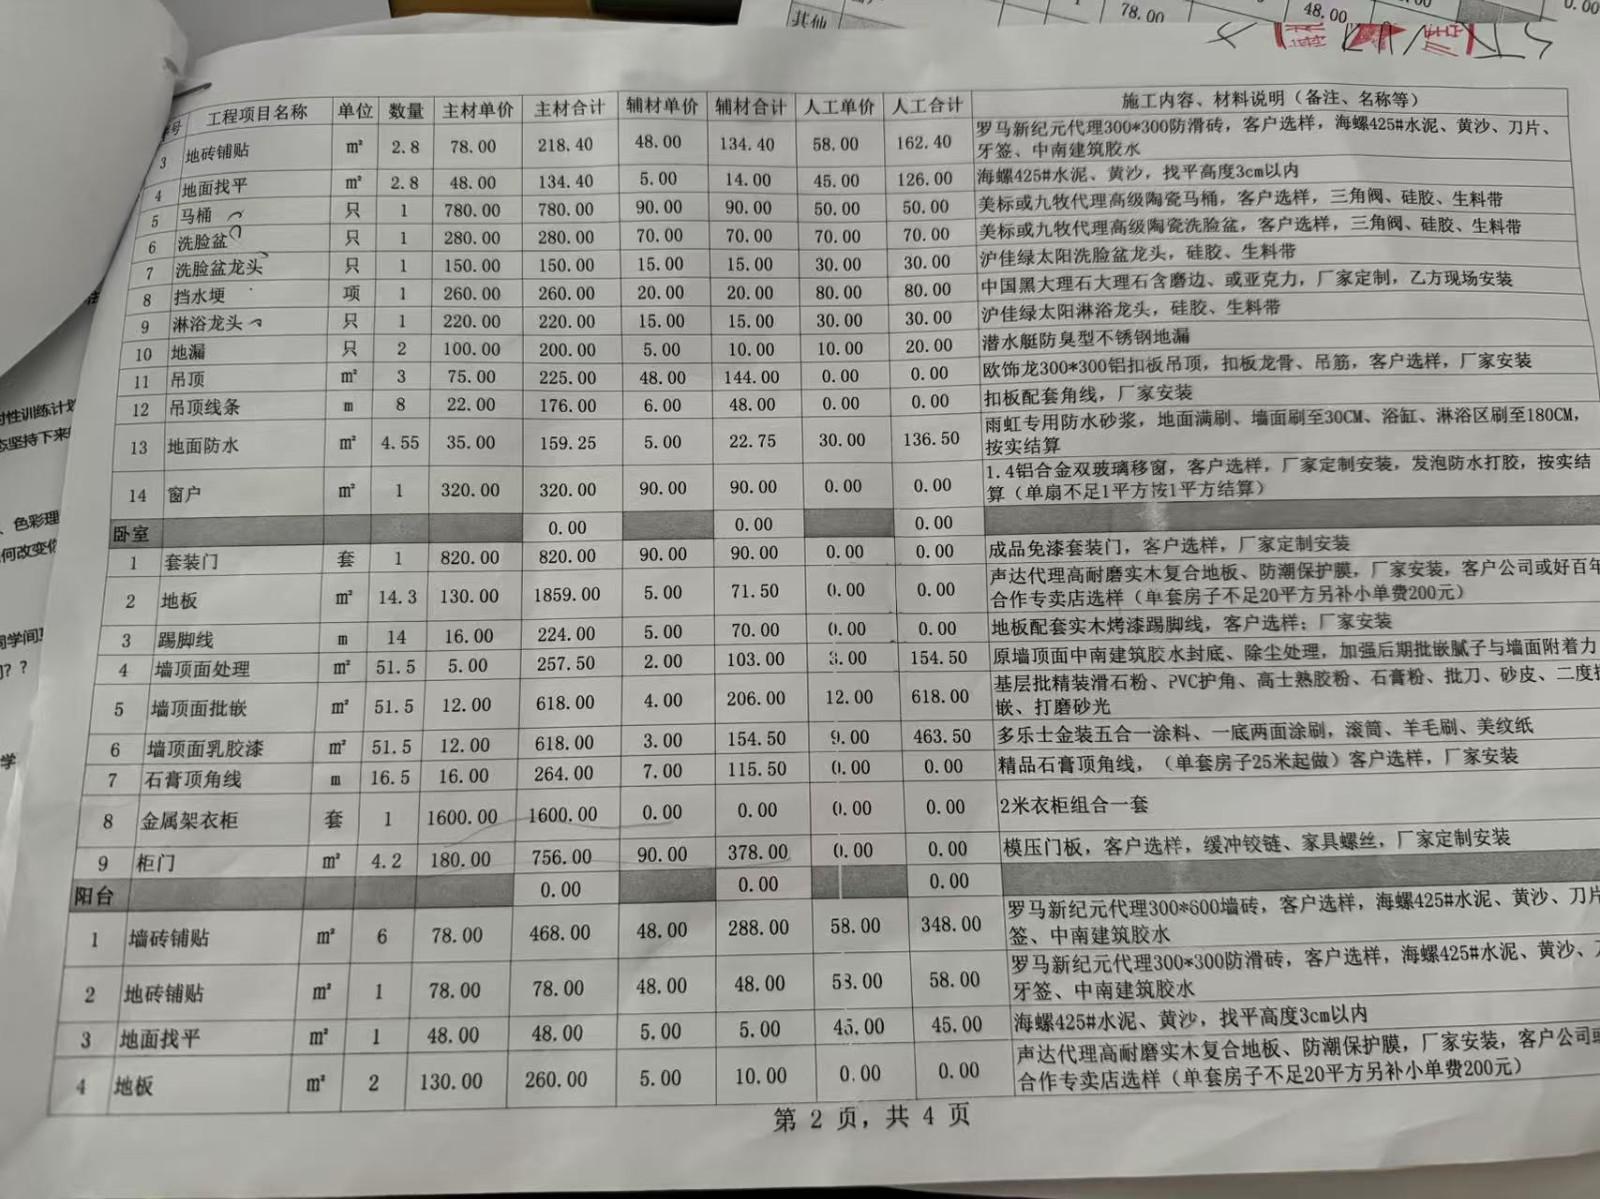 其他
78.00
48.00
0.00
序号 工程项目名称 单位 数量 主材单价 主材合计 辅材单价 辅材合计 人工单价 人工合计 施工内容、材料说明（备注、名称等）
3 地砖铺贴 ㎡ 2.8 78.00 218.40 48.00 134.40 58.00 162.40 罗马新纪元代理300*300防滑砖，客户选样，海螺425#水泥、黄沙、刀片、
牙签、中南建筑胶水
4 地面找平 ㎡ 2.8 48.00 134.40 5.00 14.00 45.00 126.00 海螺425#水泥、黄沙，找平高度3cm以内
5 马桶 只 1 780.00 780.00 90.00 90.00 50.00 50.00 美标或九牧代理高级陶瓷马桶，客户选样，三角阀、硅胶、生料带
6 洗脸盆 只 1 280.00 280.00 70.00 70.00 70.00 70.00 美标或九牧代理高级陶瓷洗脸盆，客户选样，三角阀、硅胶、生料带
7 洗脸盆龙头 只 1 150.00 150.00 15.00 15.00 30.00 30.00 沪佳绿太阳洗脸盆龙头，硅胶、生料带
8 挡水埂 项 1 260.00 260.00 20.00 20.00 80.00 80.00 中国黑大理石大理石含磨边、或亚克力，厂家定制，乙方现场安装
9 淋浴龙头 只 1 220.00 220.00 15.00 15.00 30.00 30.00 沪佳绿太阳淋浴龙头，硅胶、生料带
10 地漏 只 2 100.00 200.00 5.00 10.00 10.00 20.00 潜水艇防臭型不锈钢地漏
11 吊顶 ㎡ 3 75.00 225.00 48.00 144.00 0.00 0.00 欧饰龙300*300铝扣板吊顶，扣板龙骨、吊筋，客户选样，厂家安装
12 吊顶线条 m 8 22.00 176.00 6.00 48.00 0.00 0.00 扣板配套角线，厂家安装
13 地面防水 ㎡ 4.55 35.00 159.25 5.00 22.75 30.00 136.50 雨虹专用防水砂浆，地面满刷、墙面刷至30CM、浴缸、淋浴区刷至180CM，
按实结算
14 窗户 ㎡ 1 320.00 320.00 90.00 90.00 0.00 0.00 1.4铝合金双玻璃移窗，客户选样，厂家定制安装，发泡防水打胶，按实结
算（单扇不足1平方按1平方结算）
卧室 0.00 0.00 0.00
1 套装门 套 1 820.00 820.00 90.00 90.00 0.00 0.00 成品免漆套装门，客户选样，厂家定制安装
2 地板 ㎡ 14.3 130.00 1859.00 5.00 71.50 0.00 0.00 声达代理高耐磨实木复合地板、防潮保护膜，厂家安装，客户公司或好百年
合作专卖店选样（单套房子不足20平方另补小单费200元）
3 踢脚线 m 14 16.00 224.00 5.00 70.00 0.00 0.00 地板配套实木烤漆踢脚线，客户选样；厂家安装
4 墙顶面处理 ㎡ 51.5 5.00 257.50 2.00 103.00 3.00 154.50 原墙顶面中南建筑胶水封底、除尘处理，加强后期批嵌腻子与墙面附着力
5 墙顶面批嵌 ㎡ 51.5 12.00 618.00 4.00 206.00 12.00 618.00 基层批精装滑石粉、PVC护角、高士熟胶粉、石膏粉、批刀、砂皮、二度批
嵌、打磨砂光
6 墙顶面乳胶漆 ㎡ 51.5 12.00 618.00 3.00 154.50 9.00 463.50 多乐士金装五合一涂料、一底两面涂刷，滚筒、羊毛刷、美纹纸
7 石膏顶角线 m 16.5 16.00 264.00 7.00 115.50 0.00 0.00 精品石膏顶角线，（单套房子25米起做）客户选样，厂家安装
8 金属架衣柜 套 1 1600.00 1600.00 0.00 0.00 0.00 0.00 2米衣柜组合一套
9 柜门 ㎡ 4.2 180.00 756.00 90.00 378.00 0.00 0.00 模压门板，客户选样，缓冲铰链、家具螺丝，厂家定制安装
阳台 0.00 0.00 0.00
1 墙砖铺贴 ㎡ 6 78.00 468.00 48.00 288.00 58.00 348.00 罗马新纪元代理300*600墙砖，客户选样，海螺425#水泥、黄沙、刀片
签、中南建筑胶水
2 地砖铺贴 ㎡ 1 78.00 78.00 48.00 48.00 58.00 58.00 罗马新纪元代理300*300防滑砖，客户选样，海螺425#水泥、黄沙、
牙签、中南建筑胶水
3 地面找平 ㎡ 1 48.00 48.00 5.00 5.00 45.00 45.00 海螺425#水泥、黄沙，找平高度3cm以内
4 地板 ㎡ 2 130.00 260.00 5.00 10.00 0.00 0.00 声达代理高耐磨实木复合地板、防潮保护膜，厂家安装，客户公司或
合作专卖店选样（单套房子不足20平方另补小单费200元）
第 2 页，共 4 页
对性训练计划
态坚持下来
、色彩理
何改变你
同学间
？？
学